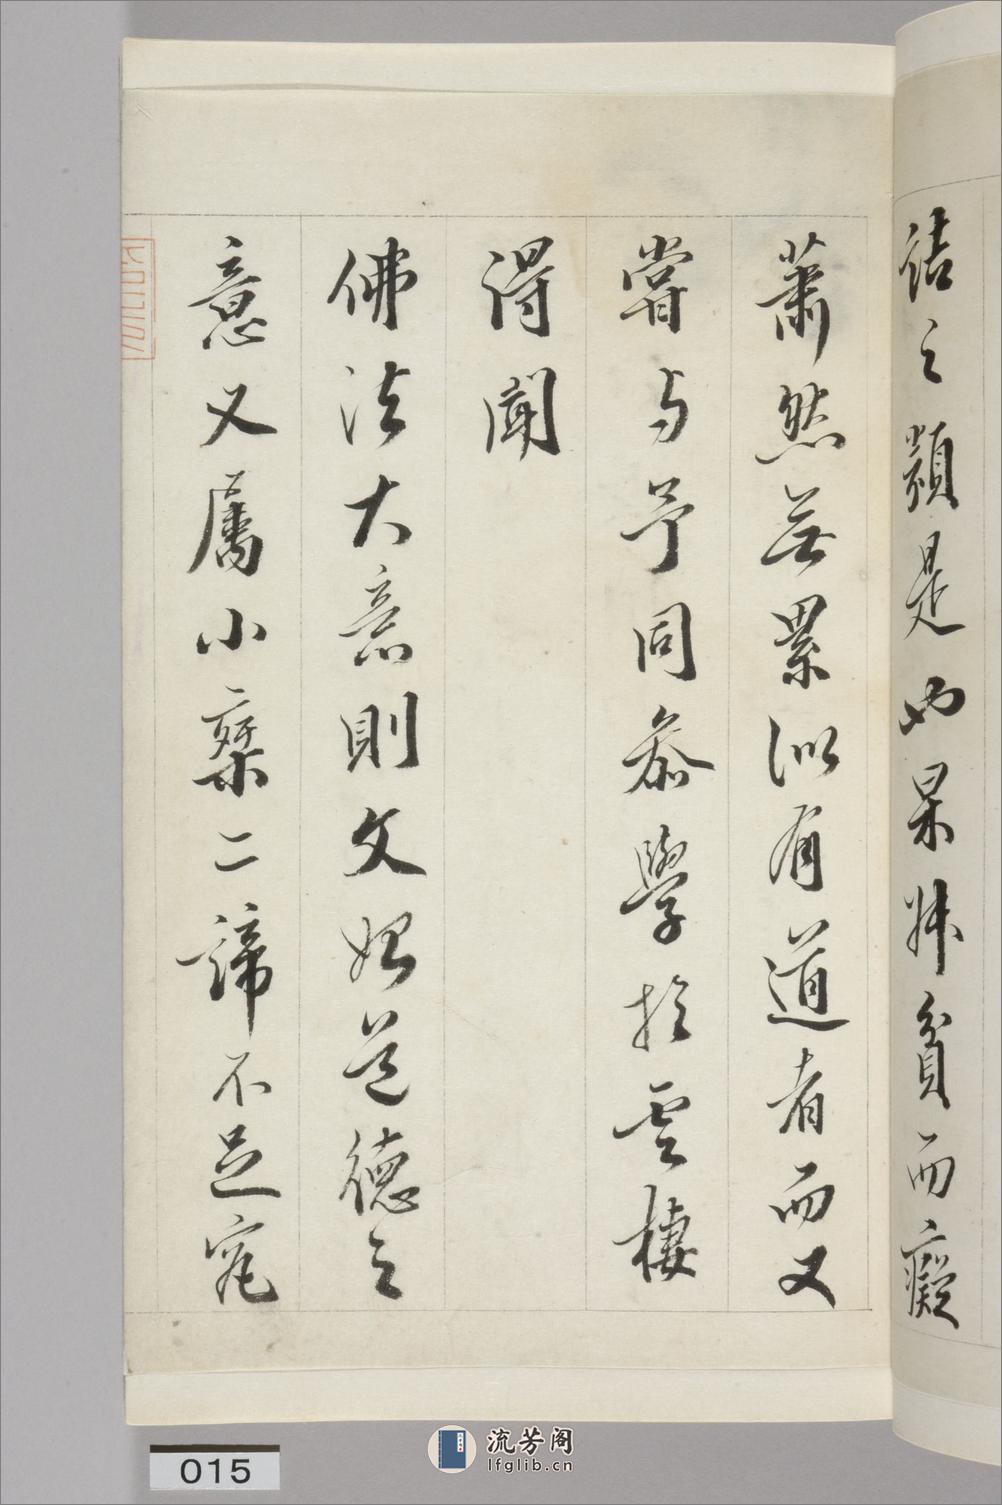 詰之類是也杲叔貧而癡
蕭然無累似有道者而又
嘗与予同參學於雲棲
得聞
佛法大意則文始道德之
意又屬小乘二諦不足究
015
流芳阁
lfglib.cn